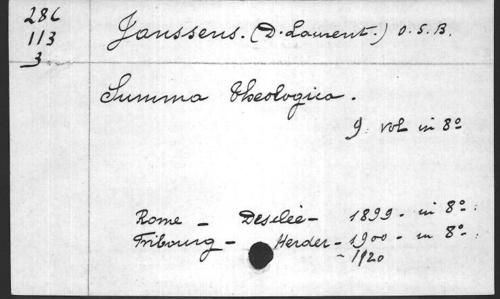 286
113
3
Janssens. (D. Laurent.) O.S.B.
Summa Theologica.
9 vol in 8º
Rome - Desclée - 1899 - in 8º.
Fribourg - Herder - 1900 - in 8º.
- 1920